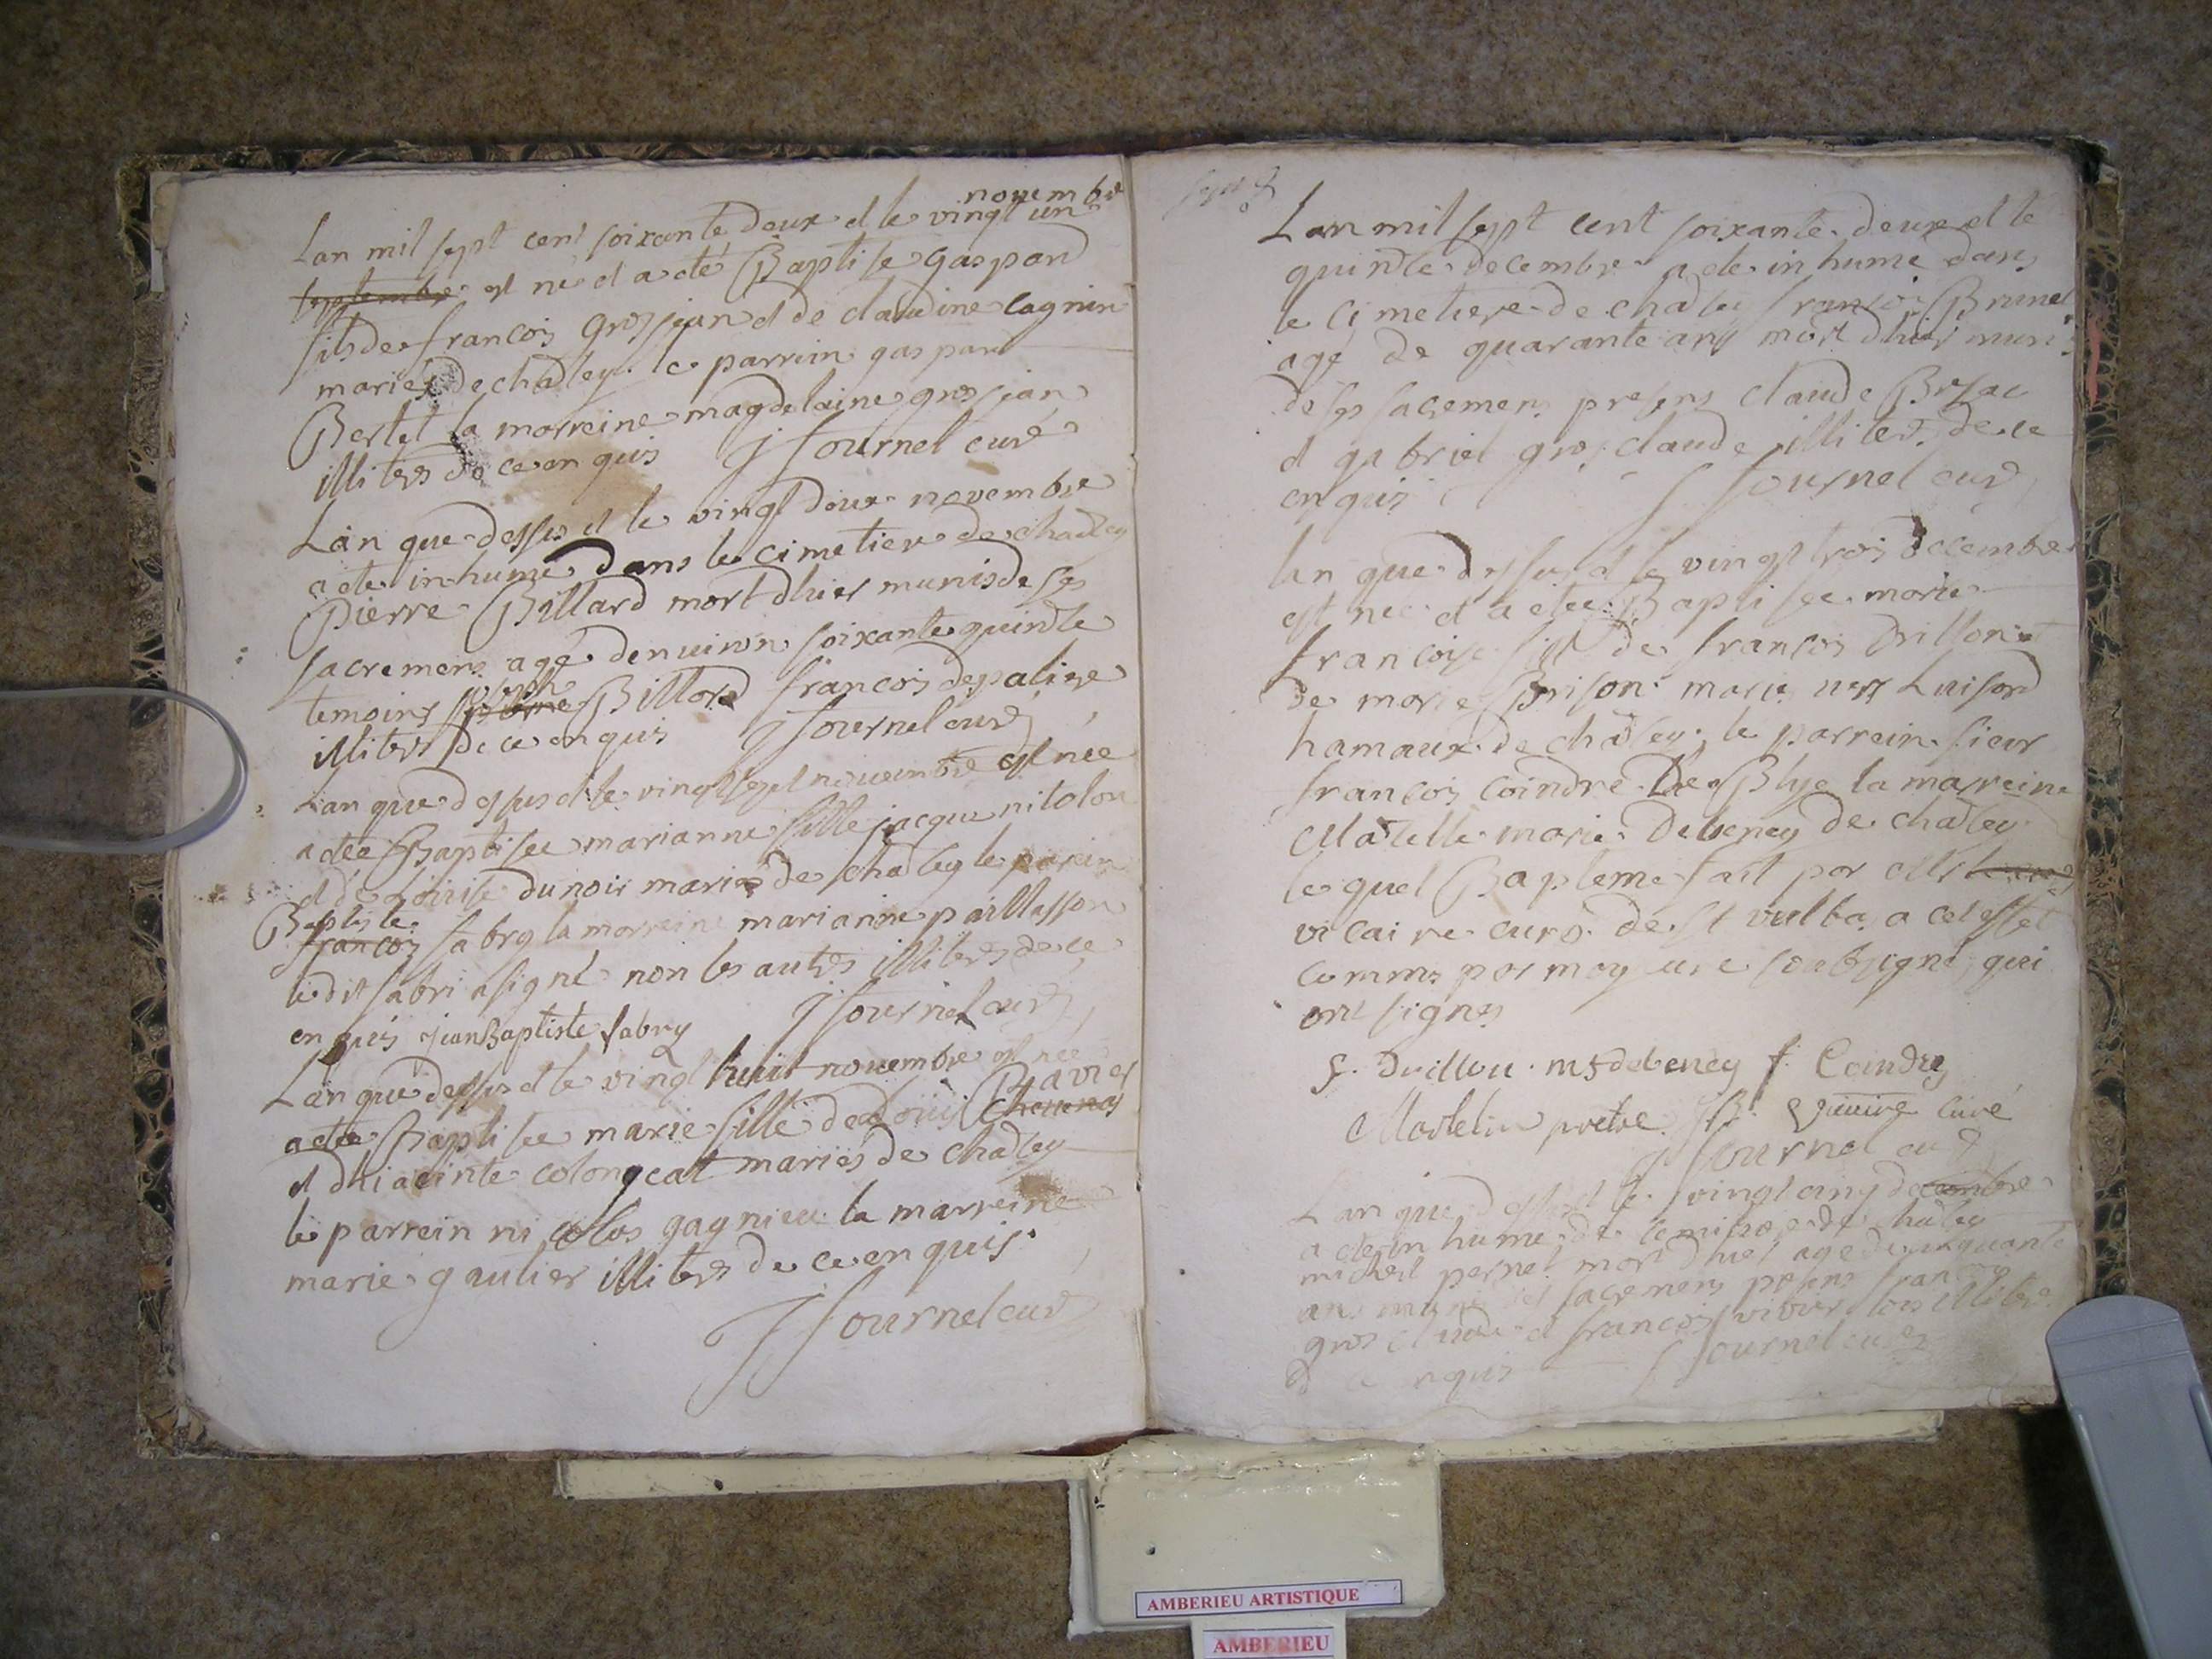 novembre
Lan mil sept cent soixante deux et le vingt un
septembre est né et a eté Baptise gaspard
fils de francois grosjean et de claudine cagnin
mariez de chaley le parrin gaspard
Bertet la marreine magdelaine grosjean
illiteres de ce enquis J fournel curé
Lan que dessus et le vingt deux novembre
a ete inhume dans le cimetiere de chaley
Pierre Billard mort dhier munis de ses
sacremens agé denuiron soixante quinze
temoins joseph pierre Billard francois depalize
illiteres de ce enquis J fournel curé
Lan que dessus et le vingt sept nouembre est née
a etée Baptisee marianne fille jacque nitolon
et de Louise dunoir mariés de chaley le parein
Baptiste
francois fabry la marreine marianne paillasson
ledit fabri a signé non les autres illiteres de ce
enquis jean Baptiste fabry J fournel curé
Lan que dessus et le vingt huit nouembre est née
a etee Baptisee marie fille de Louis Ravier
et dhiacinte colongeat mariés de chaley
le parrein nicolas gagnieu la marreine
marie gautier illiteres de ce enquis
J fournel curé
Lan mil sept cent soixante deux et le
quinze decembre a ete inhume dans
le cimetiere de chaley francois Brunet
agé de quarante ans mort dhier muni
de ses sacemens presens claude Brisac
et gabriel grosclaude illiteres de ce
enquis J fournel curé
lan que dessus et le vingt trois decembre
est née et a etee Baptisee marie
francoise fille de francois Drillon et
de marie Brison mariés uers Luisard
hamaux de chaley, le parrein sieur
francois coindre de Blye la marreine
Maselle marie Debeney de chaley
le quel Bapteme fait par Mr
vicaire curé de St vulba a cet effet
commis par moy curé soubsigné, qui
ont signes
f. Drillon m f debeney f. Coindre
Martelin pretre curé
J fournel curé
Lan que dessus et le vingt cinq decembre
a ete inhume de chaley
michel pernet mort dhier age de cinquante
ans muni des sacremens presens francois
gros claude et francois vivier tous illiteres
de ce enquis J fournel curé
AMBERIEU ARTISTIQUE
AMBERIEU